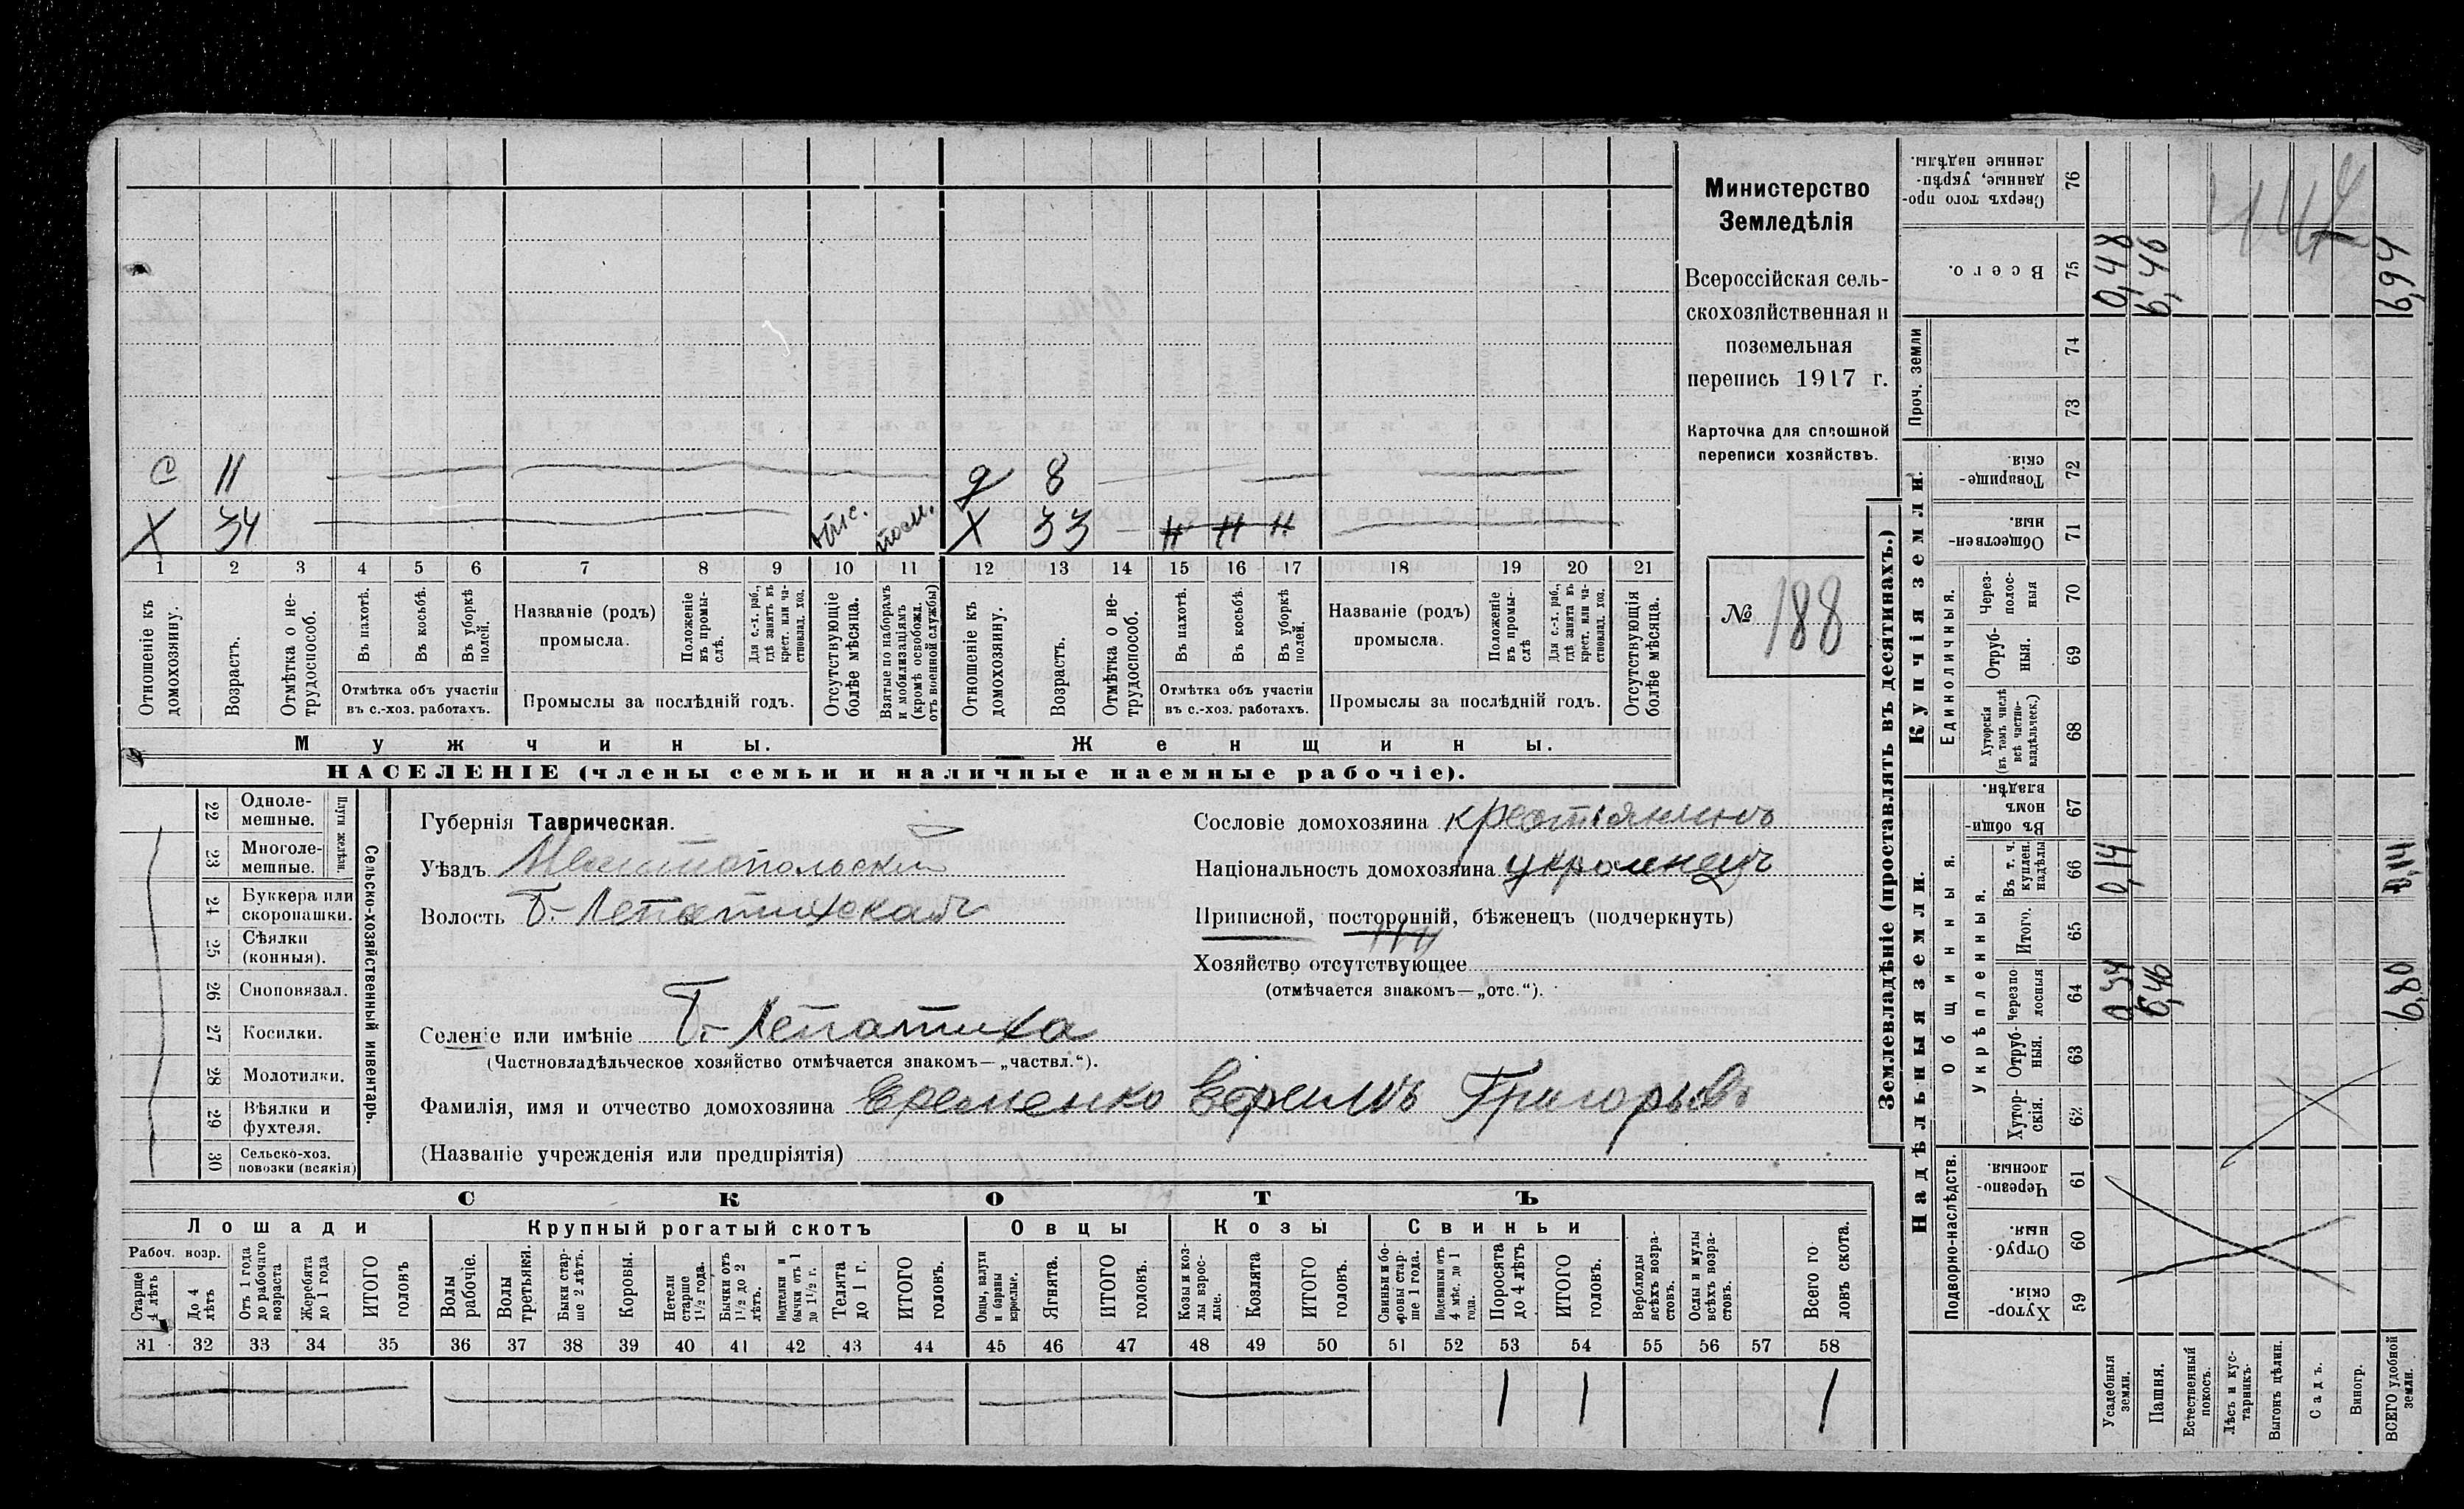 Министерство
Земледѣлія
Всероссійская сель-
скохозяйственная и
поземельная
перепись 1917 г.
Карточка для сплошной
переписи хозяйствъ.
№ 188
С 11
д 8
Х 34
отс.
Х 33 — н н н
1 2 3 4 5 6 7 8 9 10 11 12 13 14 15 16 17 18 19 20 21
Отношеніе къ домохозяину.
Возрастъ.
Отмѣтка о не-трудоспособ.
Въ пахотѣ.
Въ косьбѣ.
Въ уборкѣ полей.
Отмѣтка объ участіи въ с.-хоз. работахъ.
Названіе (родъ) промысла.
Положеніе въ промы-слѣ.
Для с.-х. раб., гдѣ занятъ въ крест. или ча-стновлад. хоз.
Промыслы за послѣдній годъ.
Отсутствующіе болѣе мѣсяца.
Взятые по наборамъ и мобилизаціямъ (кромѣ освобожд. отъ военной службы)
Отношеніе къ домохозяину.
Возрастъ.
Отмѣтка о не-трудоспособ.
Въ пахотѣ.
Въ косьбѣ.
Въ уборкѣ полей.
Отмѣтка объ участіи въ с.-хоз. работахъ.
Названіе (родъ) промысла.
Положеніе въ промы-слѣ
Для с.-х. раб., гдѣ занята въ крест. или ча-стновлад. хоз.
Промыслы за послѣдній годъ.
Отсутствующія болѣе мѣсяца.
Мужчины.
Женщины.
НАСЕЛЕНІЕ (члены семьи и наличные наемные рабочіе).
22 Одноле-мешные.
23 Многоле-мешные.
Плуги желѣзн.
24 Буккера или скоропашки.
25 Сѣялки (конныя).
26 Сноповязал.
27 Косилки.
28 Молотилки.
29 Вѣялки и фухтеля.
30 Сельско-хоз. повозки (всякія)
Сельско-хозяйственный инвентарь.
Губернія Таврическая.
Уѣздъ Мелитопольскій
Волость Б.-Лепатихская
Селеніе или имѣніе Б.-Лепатиха
(Частновладѣльческое хозяйство отмѣчается знакомъ—„частвл.“).
Фамилія, имя и отчество домохозяина Еременко Ефремъ Григорьевъ
(Названіе учрежденія или предпріятія)
Сословіе домохозяина крестьянинъ
Національность домохозяина украинецъ
Приписной, посторонній, бѣженецъ (подчеркнуть)
Хозяйство отсутствующее
(отмѣчается знакомъ—„отс.“).
СКОТЪ
Лошади
Крупный рогатый скотъ
Овцы
Козы
Свиньи
Рабоч. возр.
Старше 4 лѣтъ
До 4 лѣтъ
Отъ 1 года до рабочаго возраста
Жеребята до 1 года
ИТОГО головъ
Волы рабочіе.
Волы третьяки.
Быки стар-ше 2 лѣтъ.
Коровы.
Нетели старше 1½ года.
Бычки отъ 1½ до 2 лѣтъ.
Подтелки и бычки отъ 1 до 1½ г.
Телята до 1 г.
ИТОГО головъ.
Овцы, валухи и бараны взрослые.
Ягнята.
ИТОГО головъ.
Козы и коз-лы взрос-лые.
Козлята
ИТОГО головъ.
Свиньи и бо-ровы стар-ше 1 года.
Подсвинки отъ 4 мѣс. до 1 года.
Поросята до 4 лѣтъ
ИТОГО головъ.
Верблюды всѣхъ возра-стовъ.
Ослы и мулы всѣхъ возра-стовъ.
Всего го ловъ скота.
31 32 33 34 35 36 37 38 39 40 41 42 43 44 45 46 47 48 49 50 51 52 53 54 55 56 57 58
1 1 1
Землевладѣніе (проставлять въ десятинахъ.)
Надѣльныя земли.
Купчія земли.
Проч. земли
Подворно-наслѣдств.
Общинныя.
Укрѣпленныя.
Единоличныя.
Хутор-скія. 59
Отруб-ныя. 60
Черезпо-лосныя. 61
Хутор-скія. 62
Отруб-ныя. 63
Черезпо лосныя 64
Итого. 65
Въ т. ч. куплен. надѣлы 66
Въ общи номъ владѣн. 67
Хуторскія (въ томъ числѣ всѣ частно-владѣльческ.) 68
Отруб-ныя. 69
Через-полос-ныя 70
Обществен-ныя. 71
Товарище-скія. 72
73
74
Всего. 75
Сверхъ того про-данные, укрѣп-ленные надѣлы. 76
Усадебныя земли. 0,34 0,14 0,48
Пашня. 6,46 6,46
Естественный покосъ.
Лѣсъ и кус-тарникъ.
Выгонъ цѣлин.
Садъ.
Виногр.
ВСЕГО удобной земли. 6,80 0,14 6,94